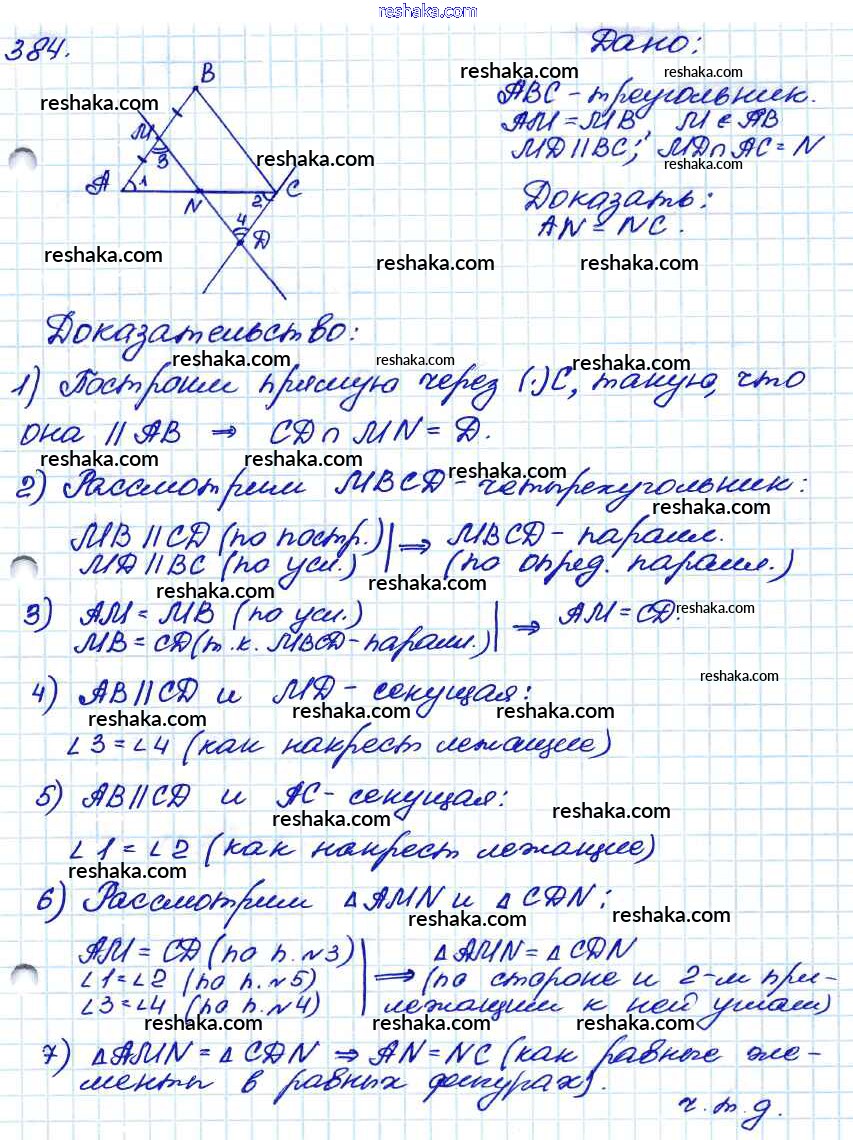 reshaka.com
384.
Дано:
reshaka.com
reshaka.com
B
reshaka.com
ABC - треугольник.
AM = MB, M ∈ AB
M
MD || BC; MD ∩ AC = N
reshaka.com
reshaka.com
3
A
1
2
C
N
Доказать:
AN = NC.
4
D
reshaka.com
reshaka.com
reshaka.com
Доказательство:
reshaka.com
reshaka.com
reshaka.com
1) Построим прямую через (·)C, такую, что
она || AB ⇒ CD ∩ MN = D.
reshaka.com
reshaka.com
reshaka.com
2) Рассмотрим MBCD - четырехугольник:
reshaka.com
MB || CD (по постр.) | ⇒ MBCD - паралл.
MD || BC (по усл.) | (по опред. паралл.)
reshaka.com
reshaka.com
3) AM = MB (по усл.) | ⇒ AM = CD.
reshaka.com
MB = CD (т.к. MBCD - паралл.) |
reshaka.com
reshaka.com
reshaka.com
4) AB || CD и MD - секущая:
reshaka.com
reshaka.com
reshaka.com
∠3 = ∠4 (как накрест лежащие)
5) AB || CD и AC - секущая:
reshaka.com
∠1 = ∠2 (как накрест лежащие)
reshaka.com
6) Рассмотрим △AMN и △CDN:
reshaka.com
reshaka.com
AM = CD (по п. №3) | △AMN = △CDN
∠1 = ∠2 (по п. №5) | ⇒ (по стороне и 2-м при-
∠3 = ∠4 (по п. №4) | лежащим к ней углам)
reshaka.com
reshaka.com
reshaka.com
7) △AMN = △CDN ⇒ AN = NC (как равные эле-
менты в равных фигурах).
reshaka.com
reshaka.com
ч.т.д.